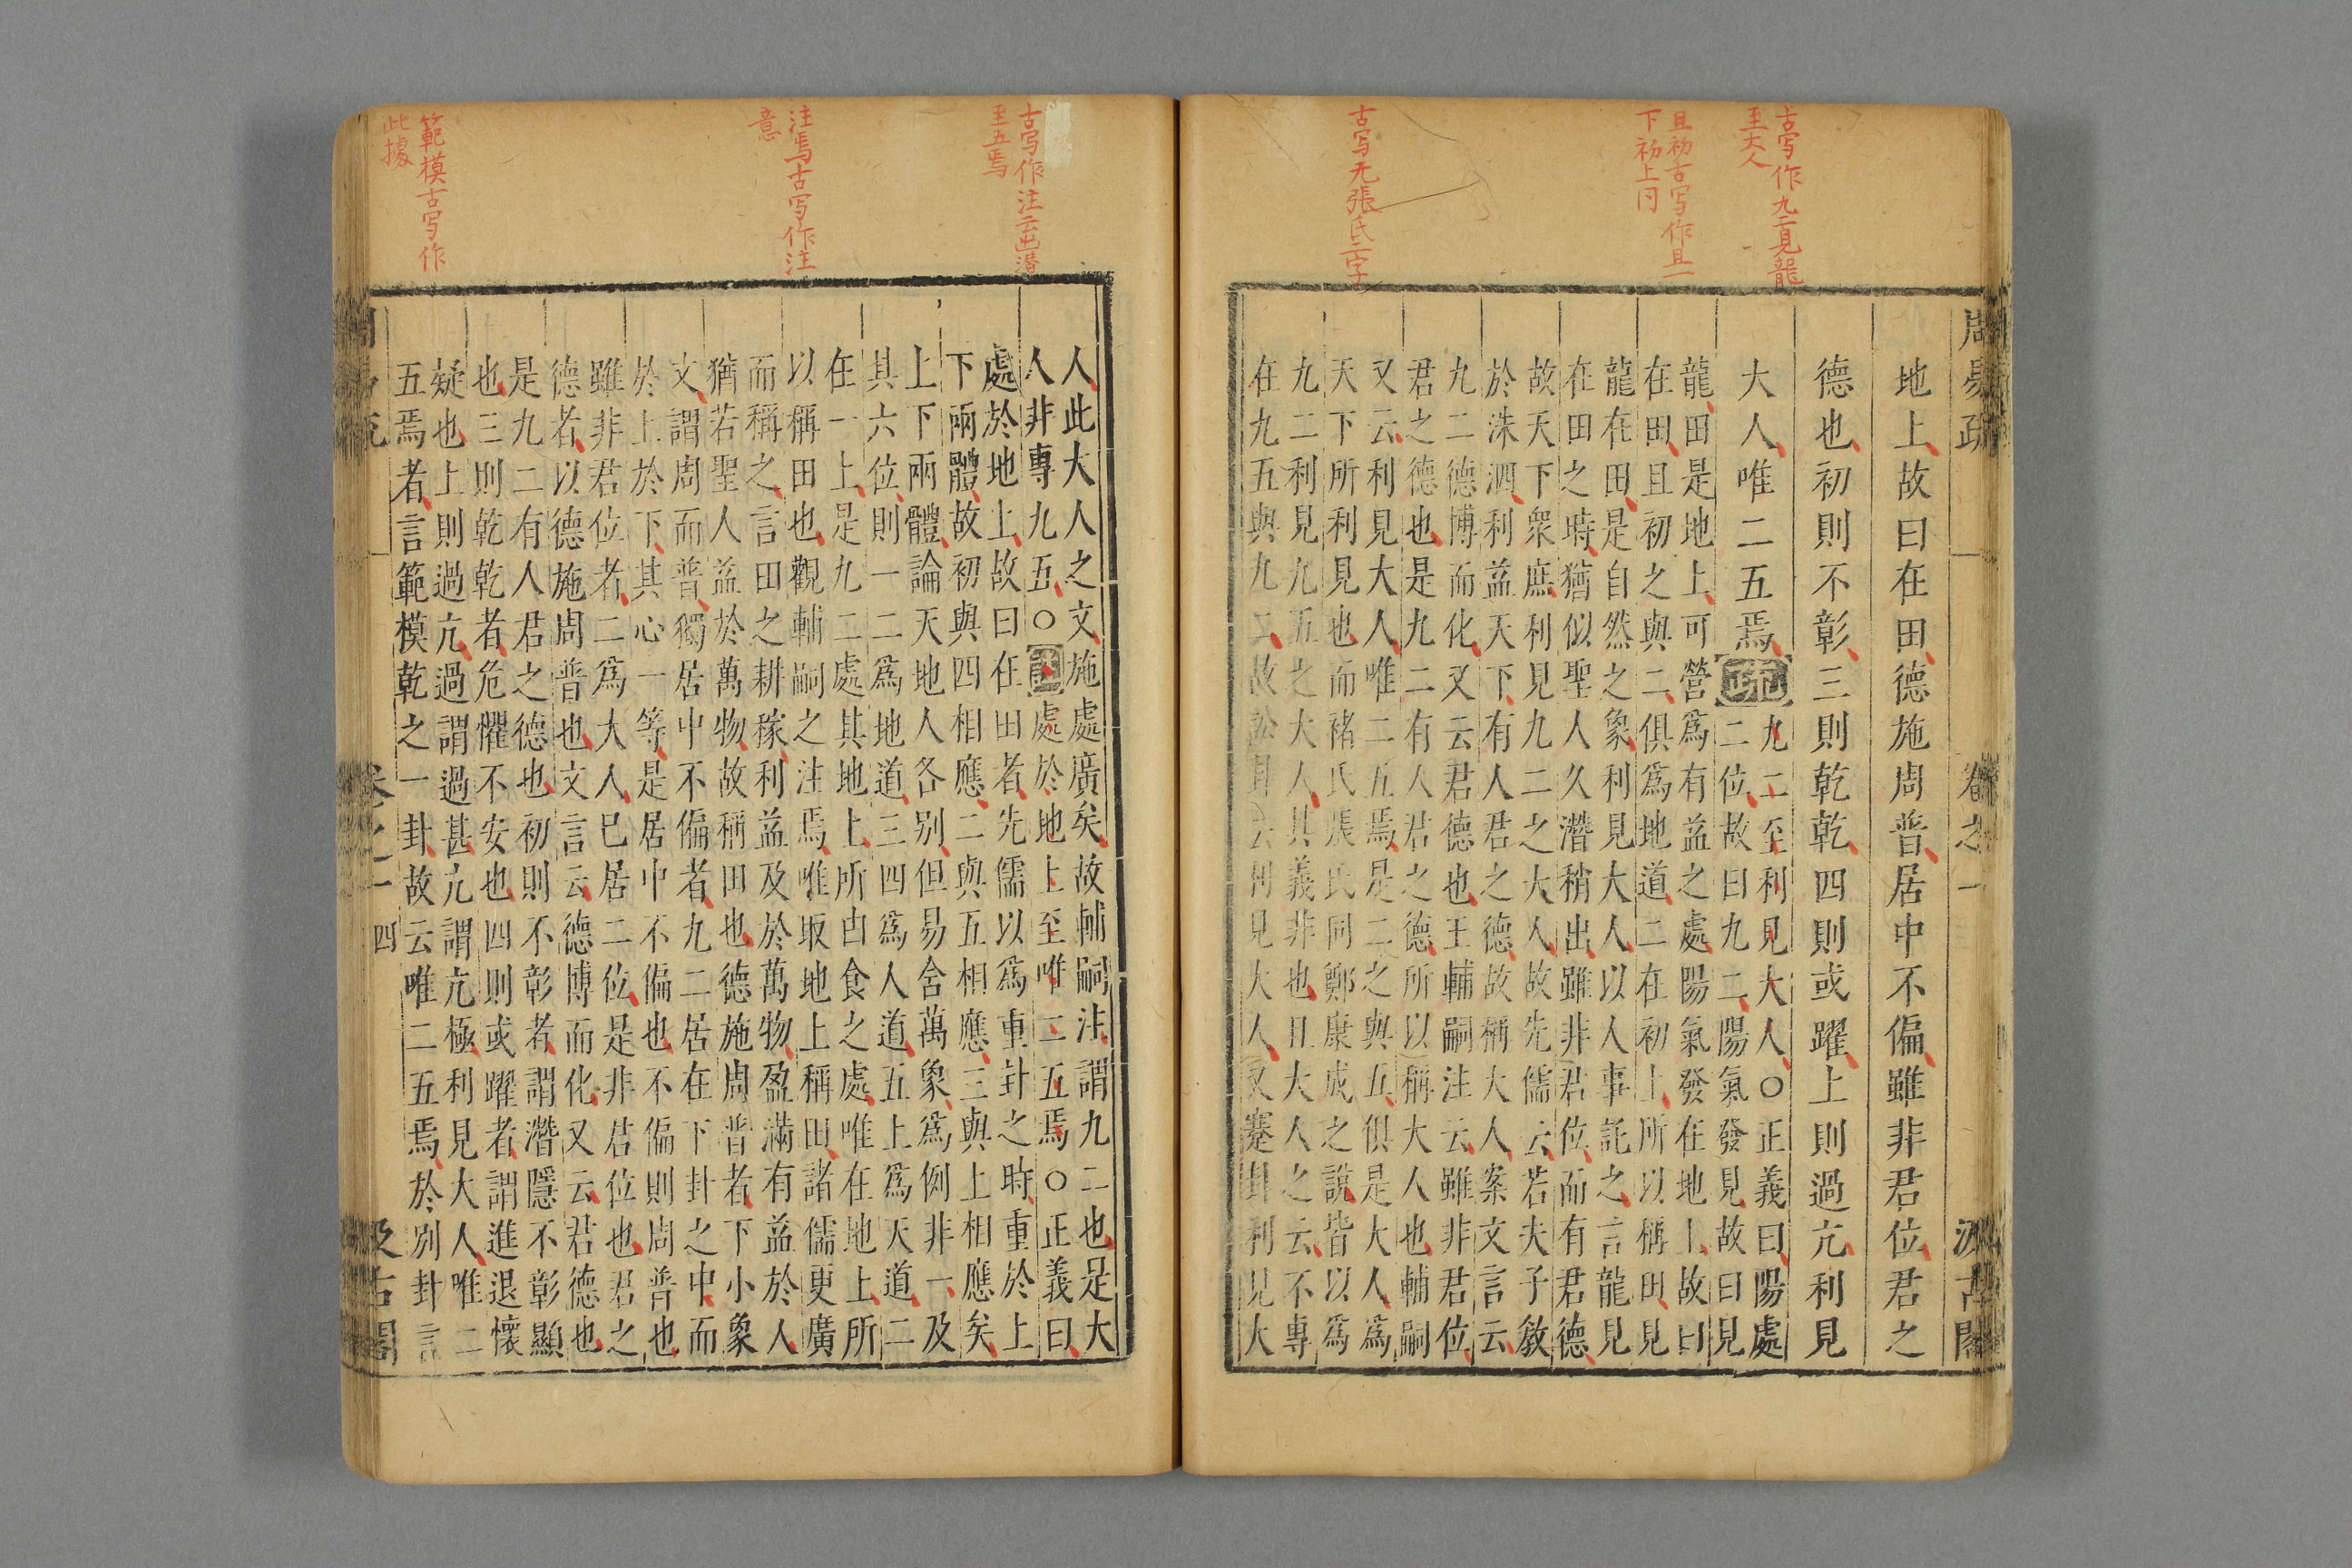 周易疏 卷之一 汲古閣
古写作九二見龍
至大人
且初古写作且一
下初上同
古写无張氏二字
地上故曰在田德施周普居中不偏雖非君位君之
德也初則不彰三則乾乾四則或躍上則過亢利見
大人唯二五焉疏九二至利見大人○正義曰陽處
二位故曰九二陽氣發見故曰見
龍田是地上可營爲有益之處陽氣發在地上故曰
在田且初之與二俱爲地道二在初上所以稱田見
龍在田是自然之象利見大人以人事託之言龍見
在田之時猶似聖人久潛稍出雖非君位而有君德
故天下衆庶利見九二之大人故先儒云若夫子教
於洙泗利益天下有人君之德故稱大人案文言云
九二德博而化又云君德也王輔嗣注云雖非君位
君之德也是九二有人君之德所以稱大人也輔嗣
又云利見大人唯二五焉是二之與五俱是大人爲
天下所利見也而褚氏張氏同鄭康成之說皆以爲
九二利見九五之大人其義非也且大人之云不專
在九五與九二故訟卦云利見大人又蹇卦利見大
古写作注云出潛
至五焉
注焉古写作注
意
範模古写作
此據
人此大人之文施處廣矣故輔嗣注謂九二也是大
人非專九五○注處於地上至唯二五焉○正義曰
處於地上故曰在田者先儒以爲重卦之時重於上
下兩體故初與四相應二與五相應三與上相應矣
上下兩體論天地人各別但易含萬象爲例非一及
其六位則一二爲地道三四爲人道五上爲天道二
在一上是九二處其地上所由食之處唯在地上所
以稱田也觀輔嗣之注焉唯取地上稱田諸儒更廣
而稱之言田之耕稼利益及於萬物盈滿有益於人
猶若聖人益於萬物故稱田也德施周普者下小象
文謂周而普獨居中不偏者九二居在下卦之中而
於上於下其心一等是居中不偏也不偏則周普也
雖非君位者二爲大人已居二位是非君位也君之
德者以德施周普也文言云德博而化又云君德也
是九二有人君之德也初則不彰者謂潛隱不彰顯
也三則乾乾者危懼不安也四則或躍者謂進退懷
疑也上則過亢過謂過甚亢謂亢極利見大人唯二
五焉者言範模乾之一卦故云唯二五焉於別卦言
卷之一 四 汲古閣